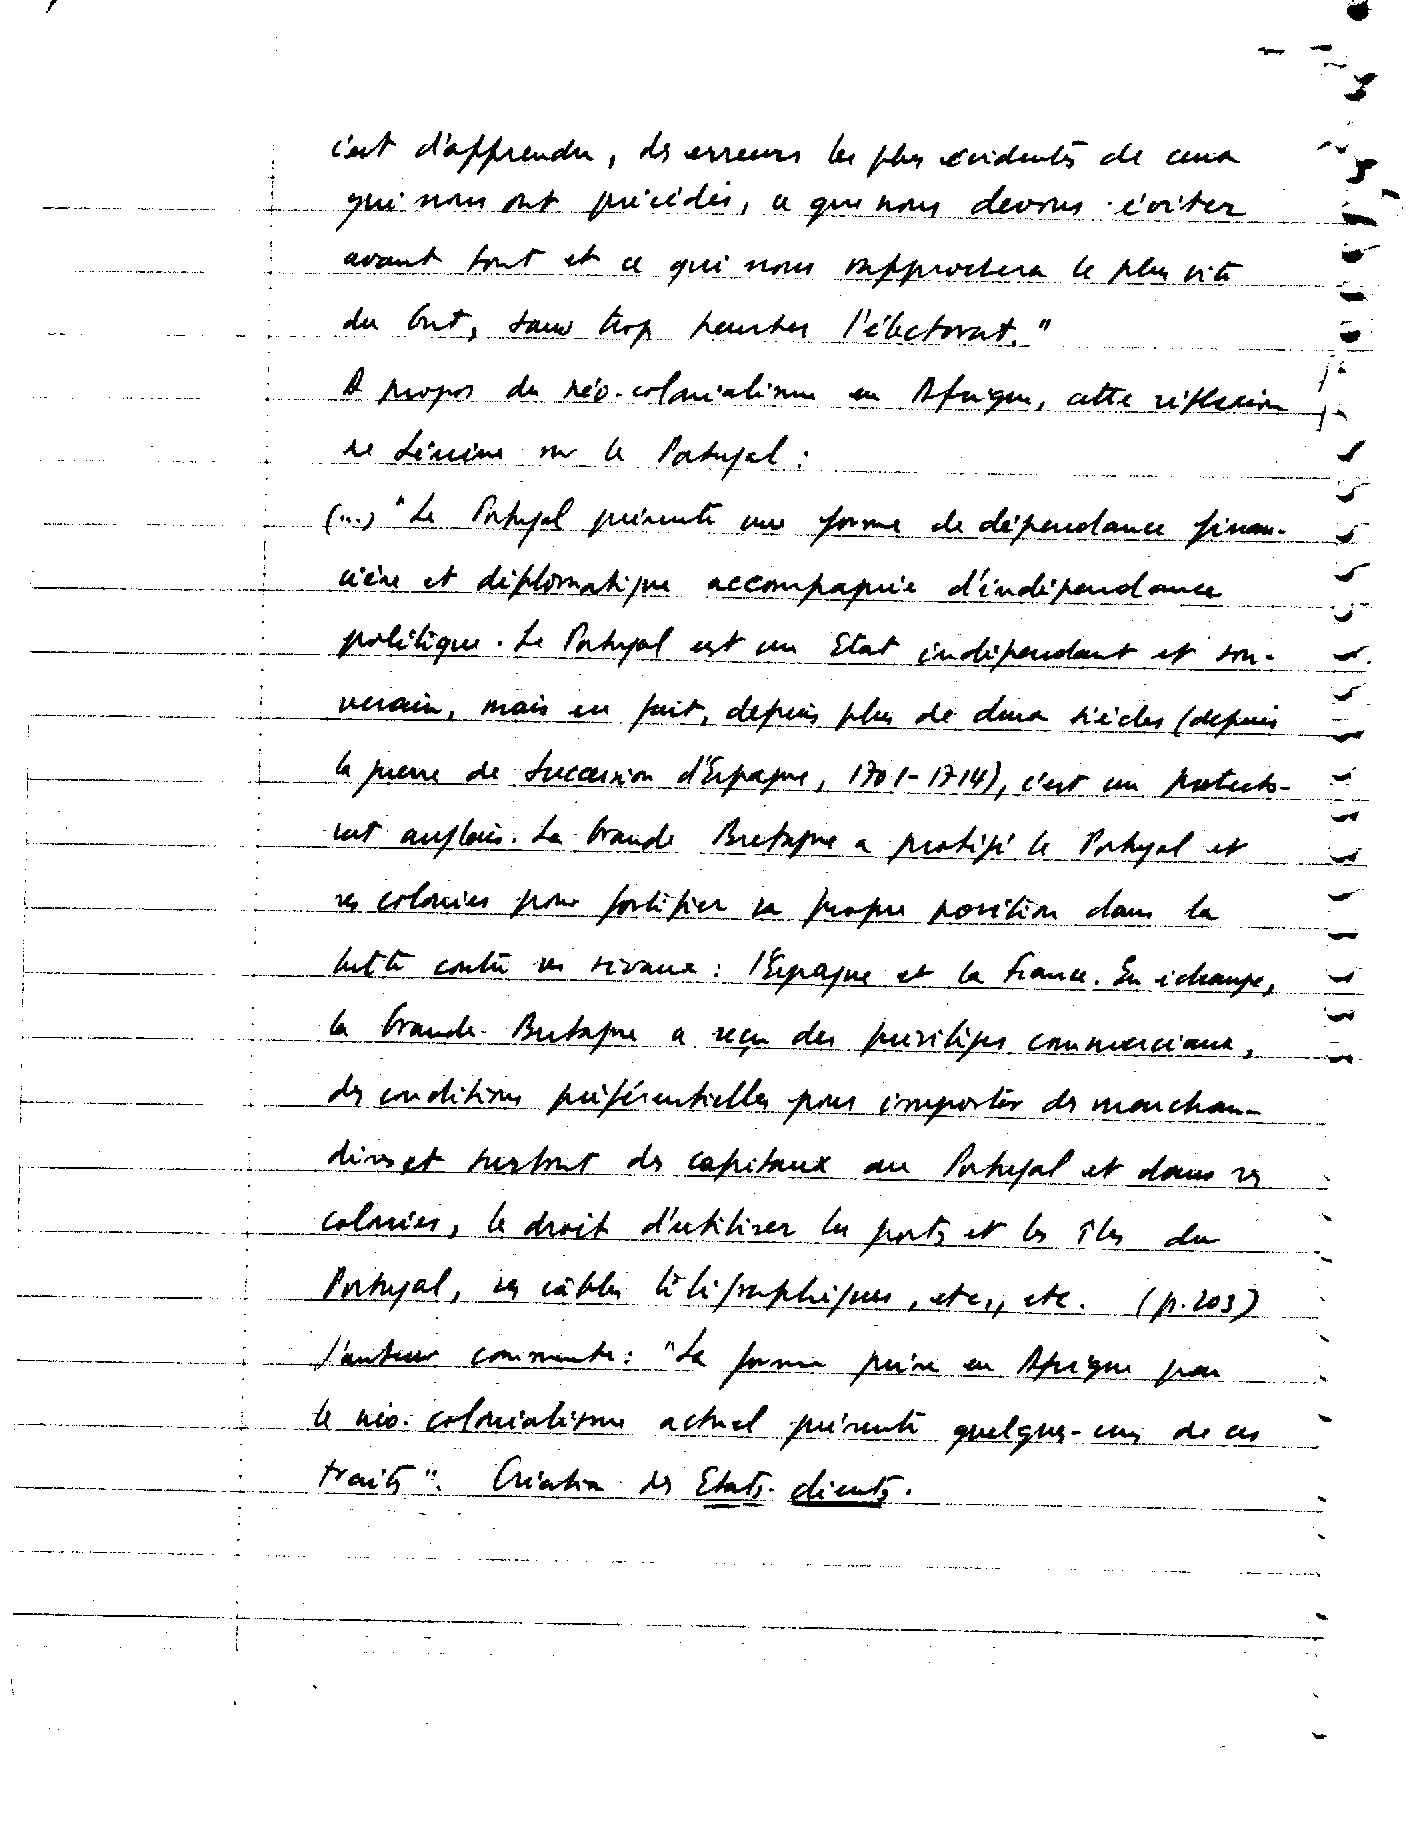 c'est d'apprendre, des erreurs les plus évidentes de ceux
qui nous ont précédés, ce que nous devons éviter
avant tout et ce qui nous rapprochera le plus vite
du but, sans trop heurter l'électorat."
A propos du néo-colonialisme en Afrique, cette réflexion
de Lénine sur le Portugal :
(...) "Le Portugal présente une forme de dépendance finan-
cière et diplomatique accompagnée d'indépendance
politique. Le Portugal est un Etat indépendant et sou-
verain, mais en fait, depuis plus de deux siècles (depuis
la guerre de Succession d'Espagne, 1701-1714), c'est un protecto-
rat anglais. La Grande Bretagne a protégé le Portugal et
ses colonies pour fortifier sa propre position dans la
lutte contre ses rivaux : l'Espagne et la France. En échange,
la Grande-Bretagne a reçu des privilèges commerciaux,
des conditions préférentielles pour importer des marchan-
dises et surtout des capitaux au Portugal et dans ses
colonies, le droit d'utiliser les ports et les îles du
Portugal, ses câbles télégraphiques, etc., etc. (p.203)
l'auteur commente : "La forme prise en Afrique par
le néo-colonialisme actuel présente quelques-uns de ces
traits". Création des Etats-clients.